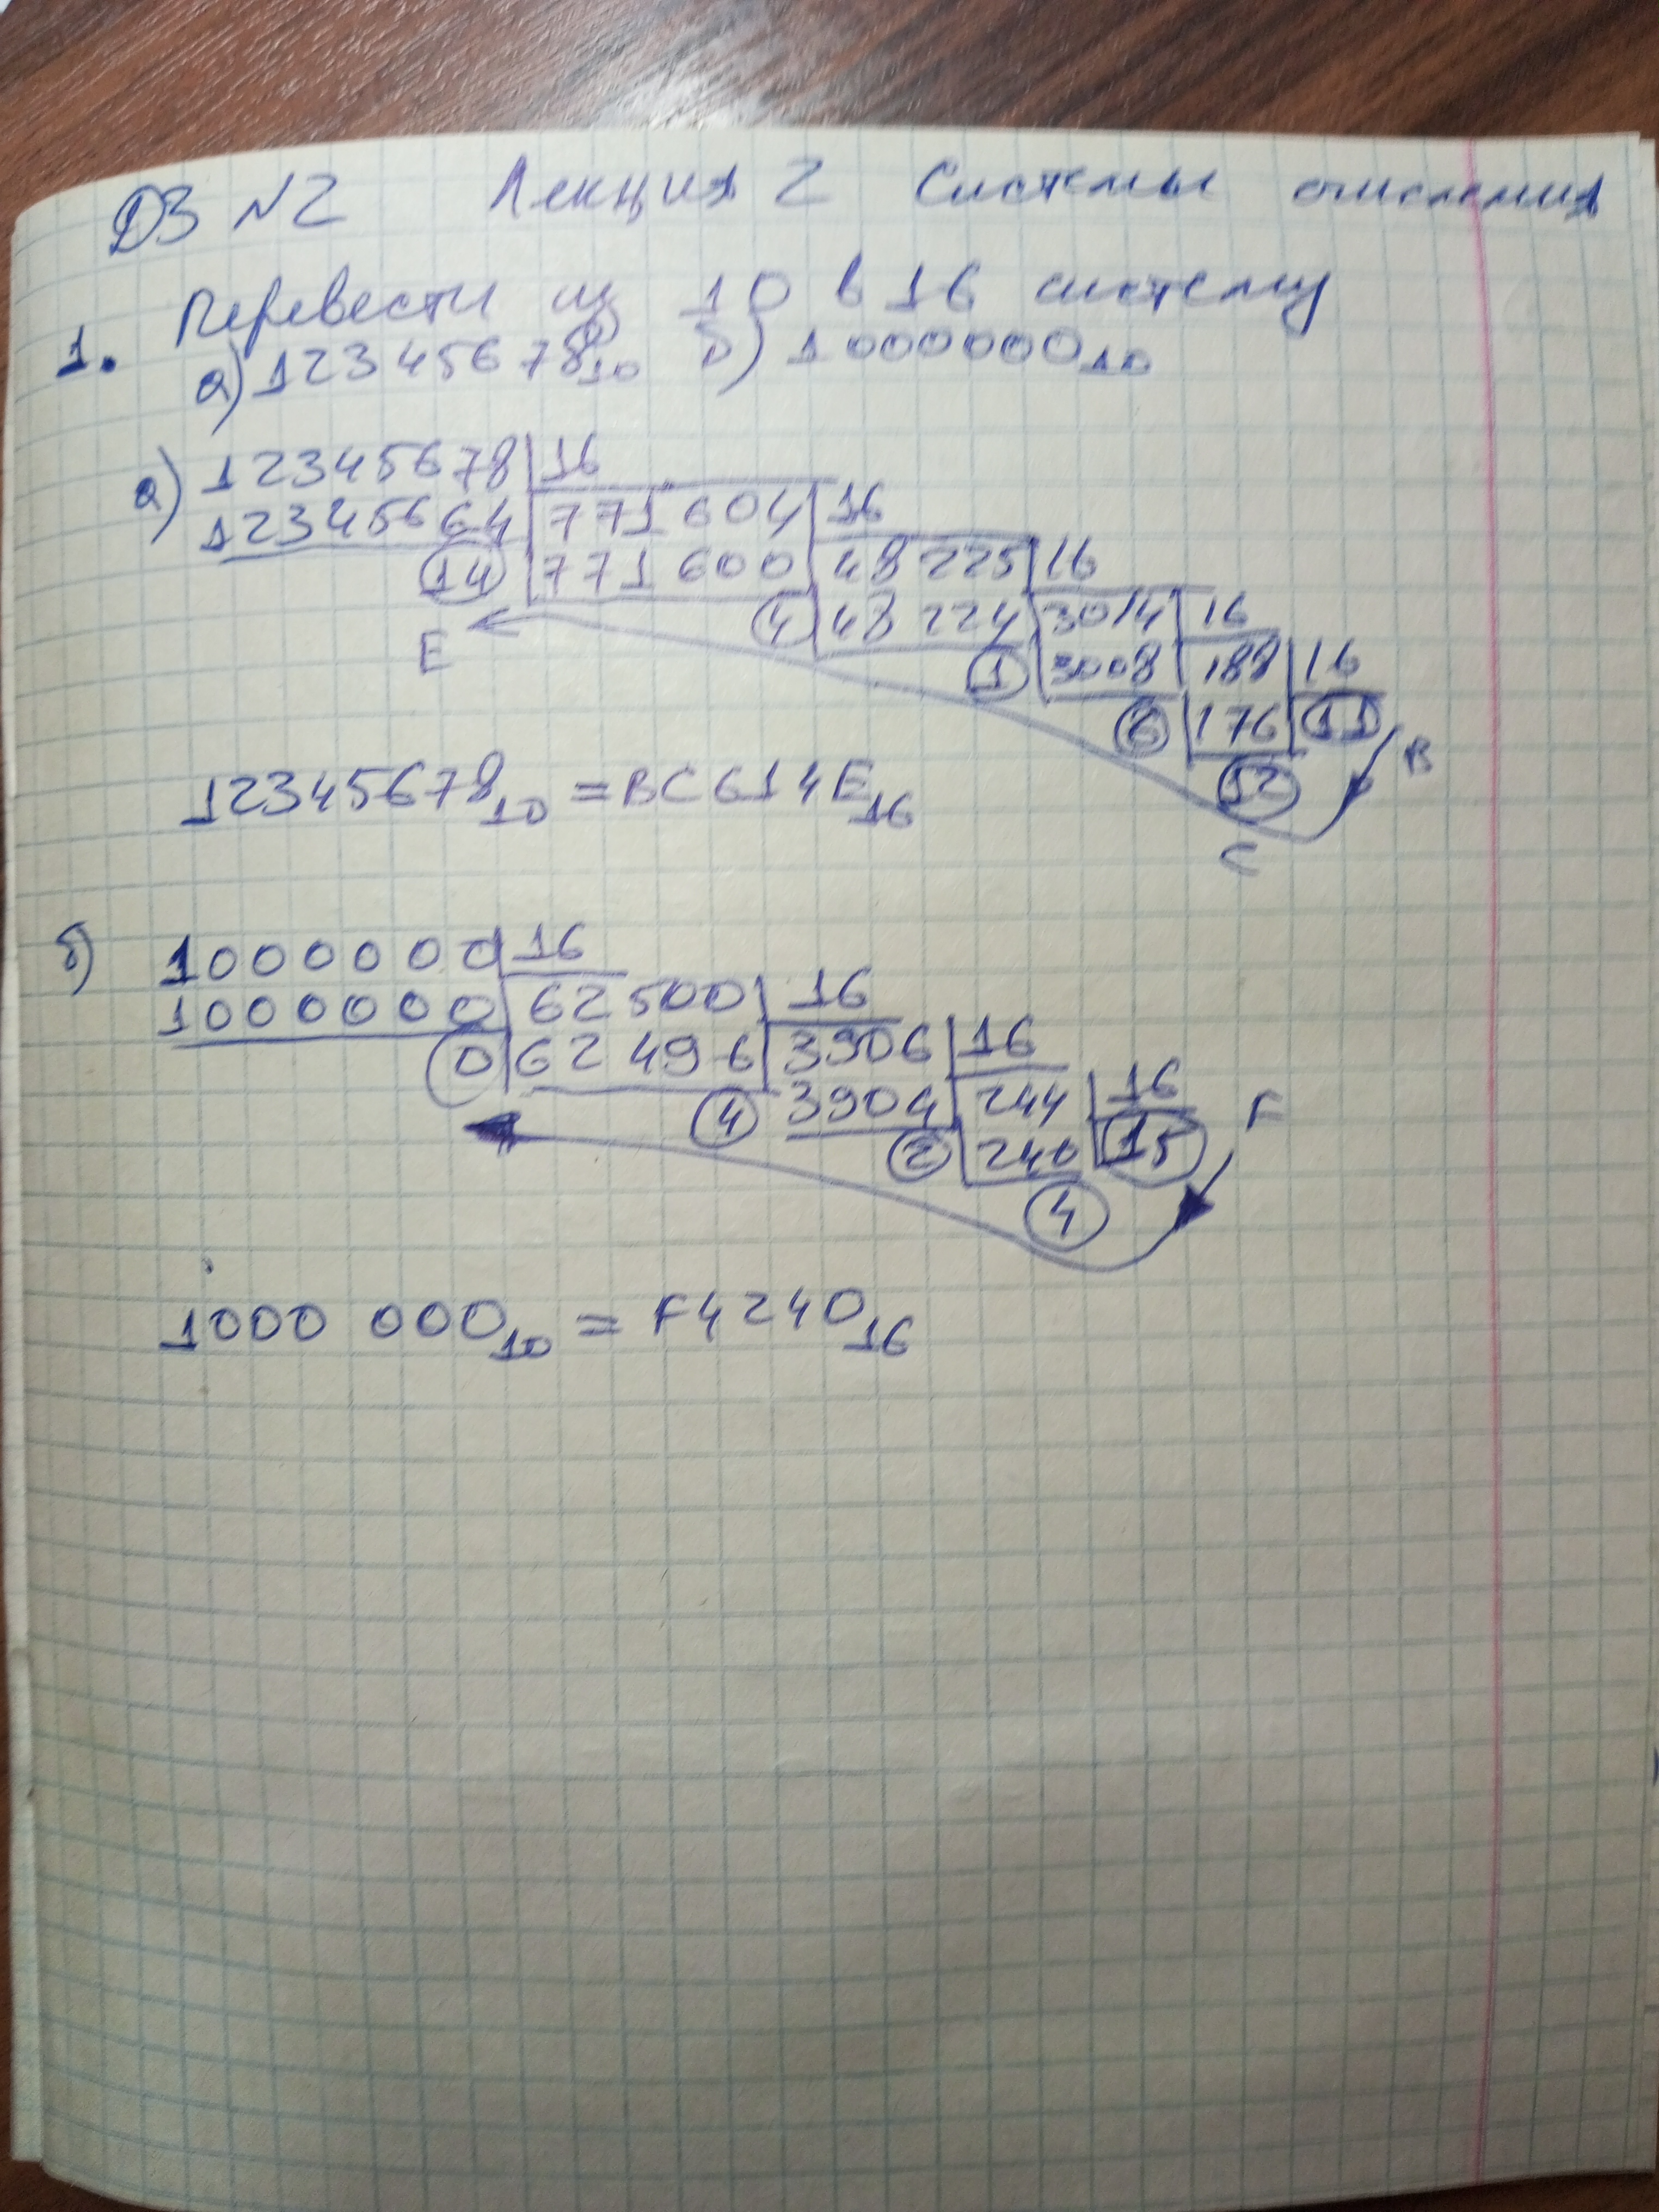 ДЗ №2 Лекция 2 Системы счисления
1. Перевести из 10 в 16 систему
а) 12345678₁₀ б) 1000000₁₀
а) 12345678 | 16
12345664 | 771604 | 16
14 | 771600 | 48225 | 16
E 4 | 48224 | 3014 | 16
1 | 3008 | 188 | 16
6 | 176 | 11 B
12
C
12345678₁₀ = BC614E₁₆
б) 1000000 | 16
1000000 | 62500 | 16
0 | 62496 | 3906 | 16
4 3904 | 244 | 16
2 | 240 | 15 F
4
1000 000₁₀ = F4240₁₆